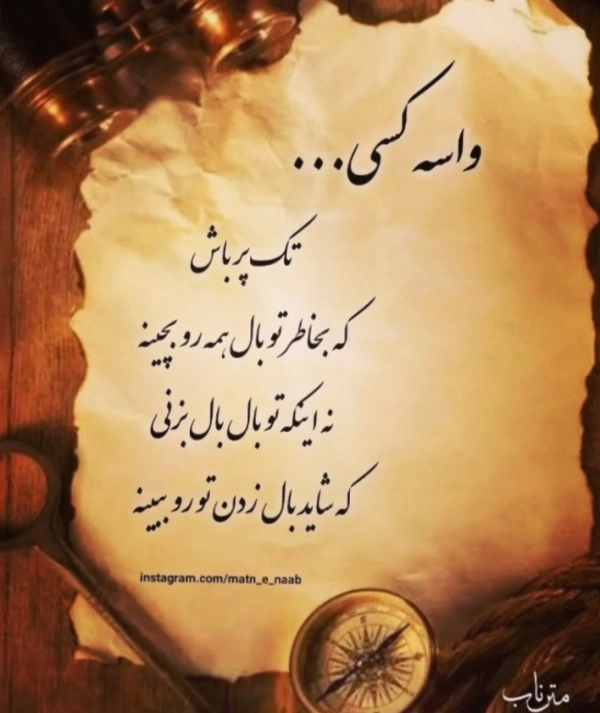 واسه کسی...
تک پر باش
که بخاطر تو بال همه رو بچینه
نه اینکه تو بال بال بزنی
که شاید بال زدن تو رو ببینه
instagram.com/matn_e_naab
متن ناب